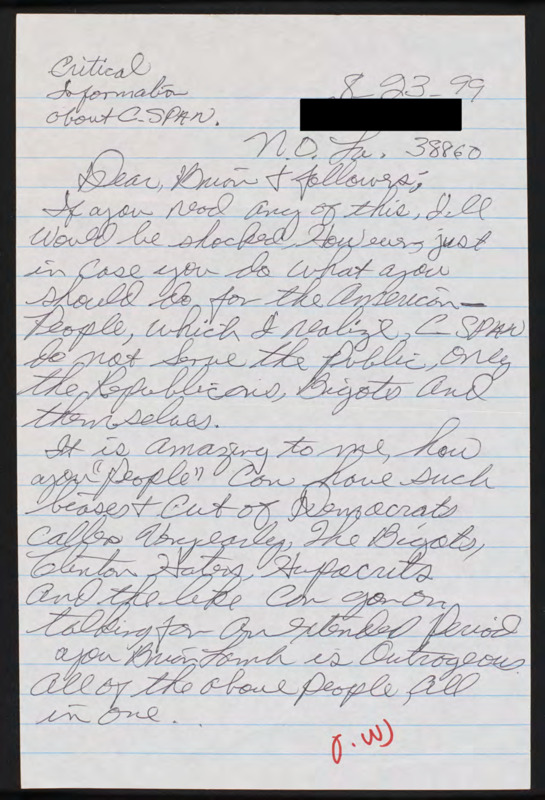 Critical
Information
about C-SPAN.
8-23-99
N.O. La. 38860
Dear, Brian & followers,
If you read any of this, I'll
would be shocked. However, just
in case you do what you
should do for the American-
People, which I realize, C-SPAN
do not serve the public, only
the Republicans, Bigots and
themselves.
It is amazing to me, how
you "people" can have such
biases & cut of Democrats
calles very early, The Bigots,
Clinton Haters, Hypocrits
and the like can go on
talking for an extended period
you Brian Lamb is Outrageous.
all of the above people, all
in one...